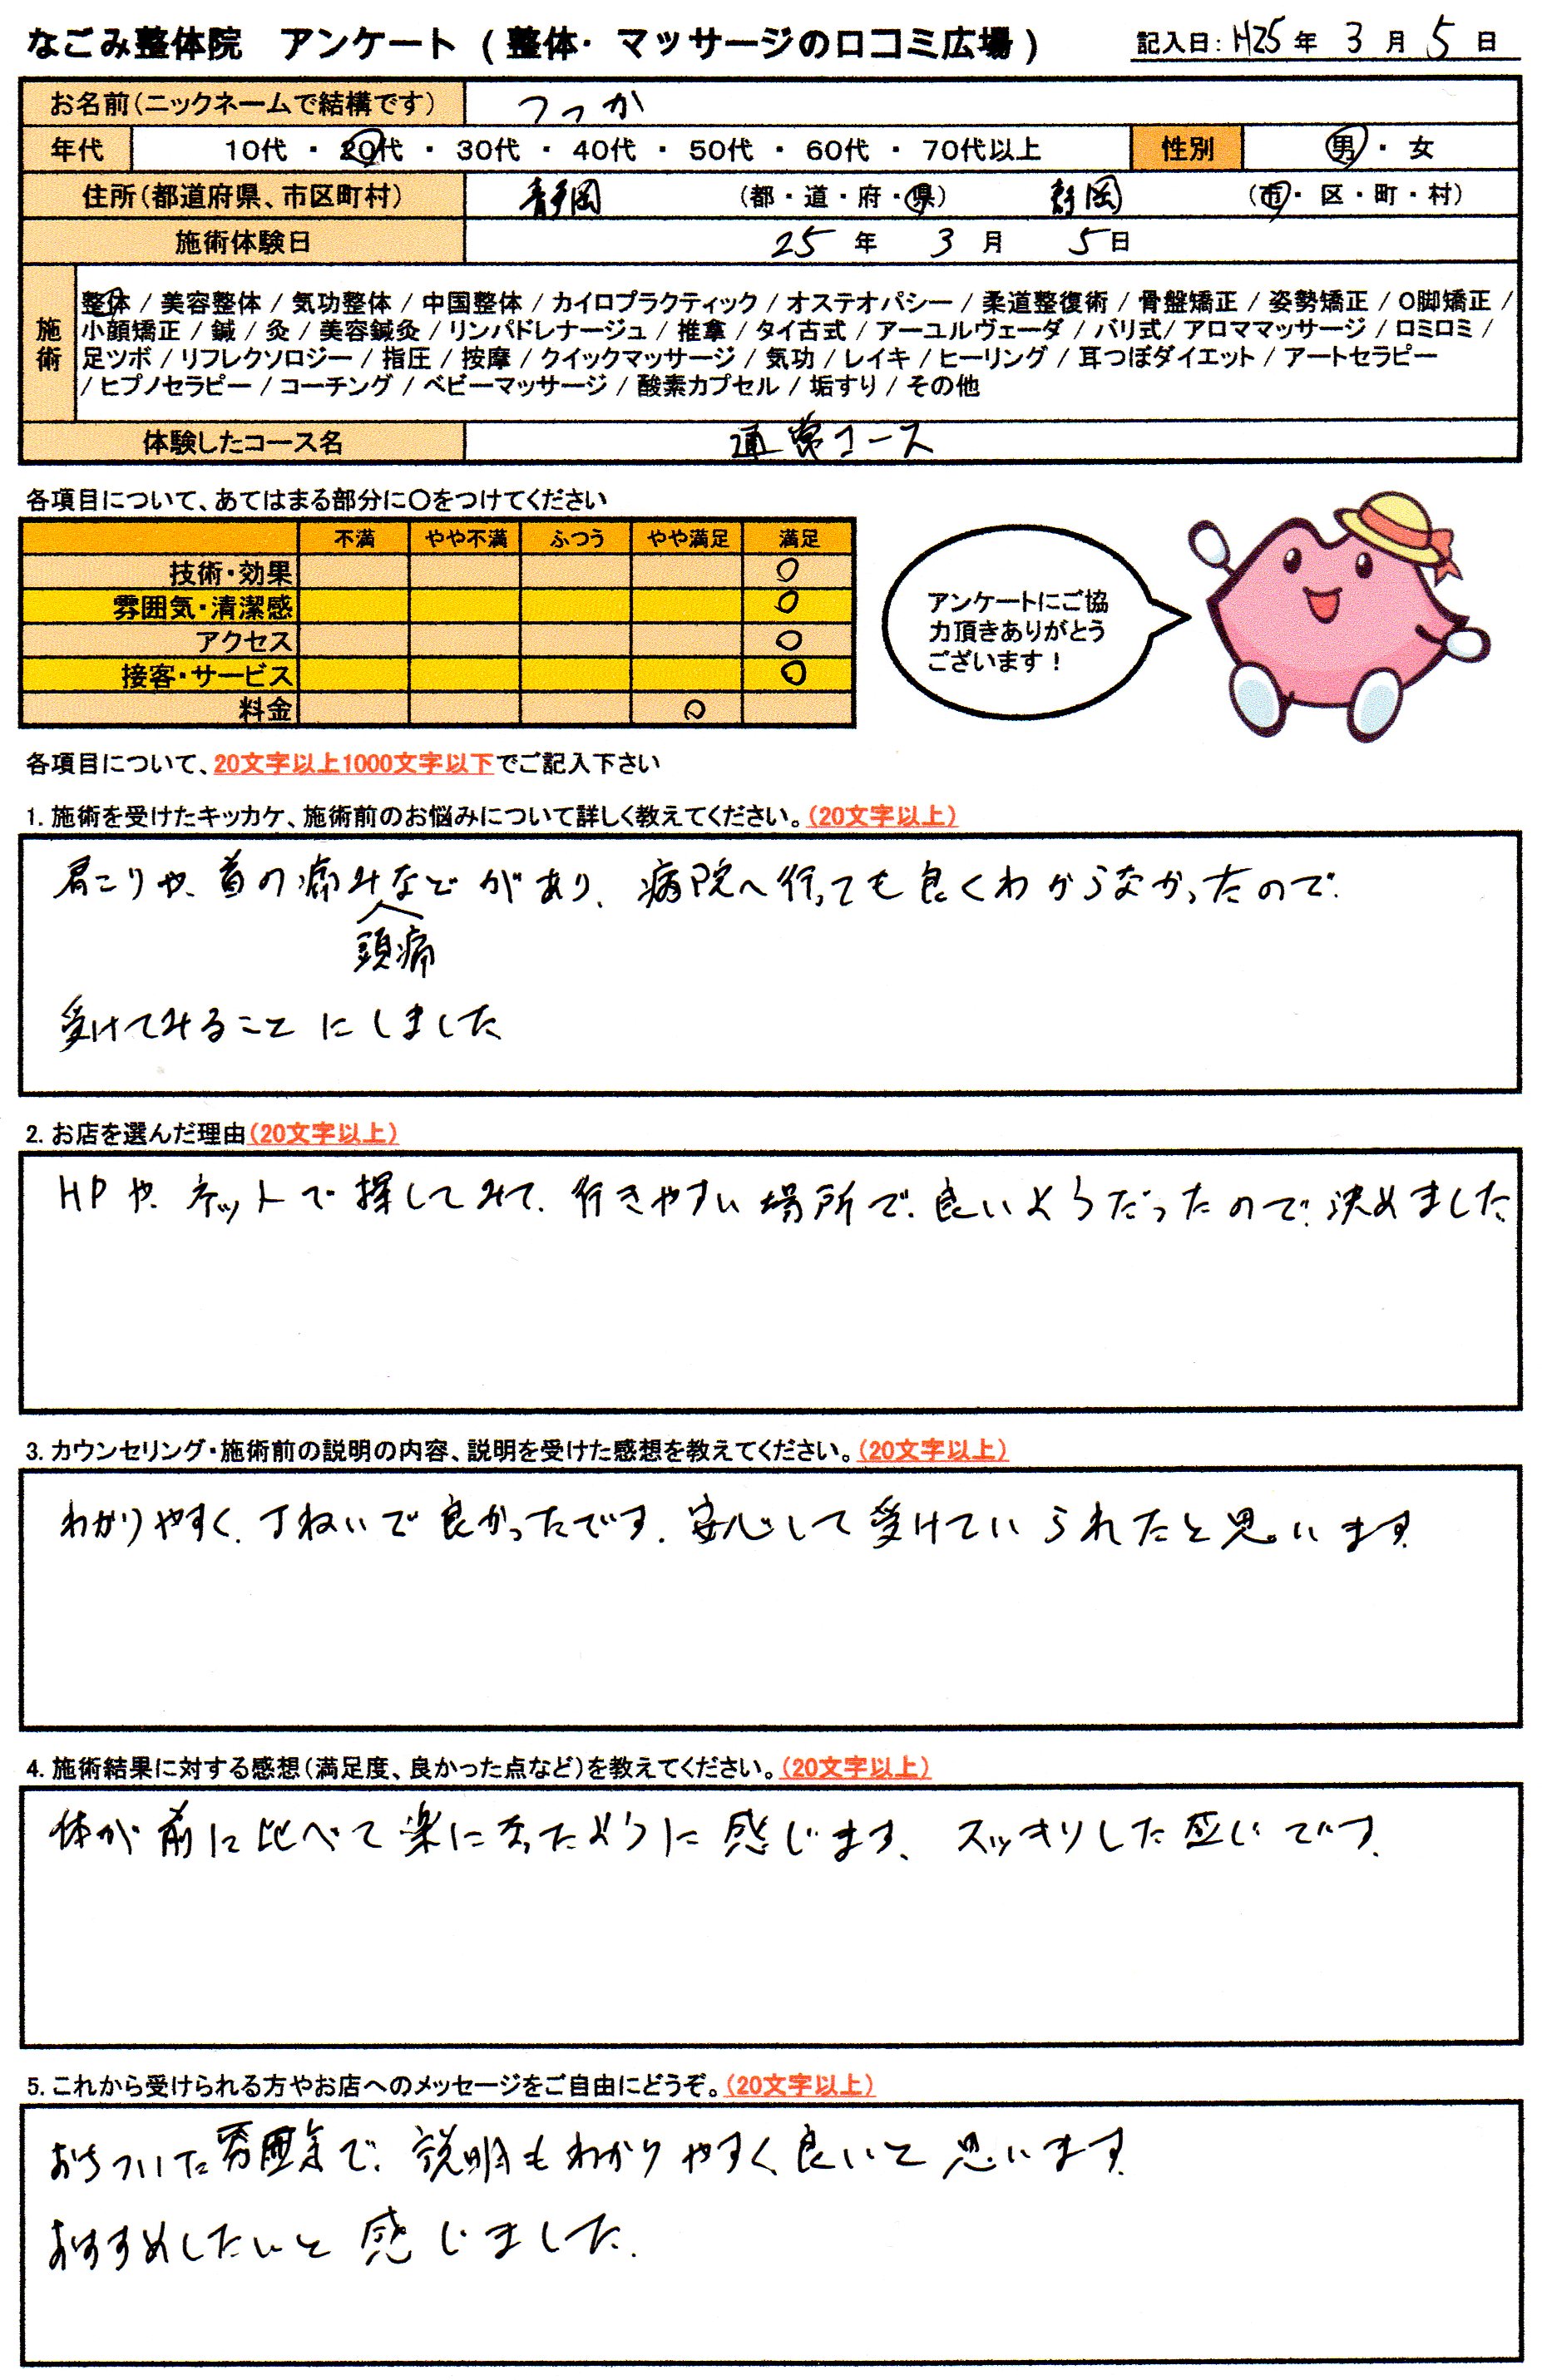 なごみ整体院 アンケート (整体・マッサージの口コミ広場)
記入日:H25年 3月 5日
お名前(ニックネームで結構です) つっか
年代 10代 ・ 20代 ・ 30代 ・ 40代 ・ 50代 ・ 60代 ・ 70代以上 性別 男・女
住所(都道府県、市区町村) 静岡 (都・道・府・県) 静岡 (市・区・町・村)
施術体験日 25年 3月 5日
施術
整体 / 美容整体 / 気功整体 / 中国整体 / カイロプラクティック / オステオパシー / 柔道整復術 / 骨盤矯正 / 姿勢矯正 / O脚矯正 /
小顔矯正 / 鍼 / 灸 / 美容鍼灸 / リンパドレナージュ / 推拿 / タイ古式 / アーユルヴェーダ / バリ式/ アロママッサージ / ロミロミ /
足ツボ / リフレクソロジー / 指圧 / 按摩 / クイックマッサージ / 気功 / レイキ / ヒーリング / 耳つぼダイエット / アートセラピー
/ ヒプノセラピー / コーチング / ベビーマッサージ / 酸素カプセル / 垢すり / その他
体験したコース名 通常コース
各項目について、あてはまる部分に○をつけてください
不満 やや不満 ふつう やや満足 満足
技術・効果 ○
雰囲気・清潔感 ○
アクセス ○
接客・サービス ○
料金 ○
アンケートにご協
力頂きありがとう
ございます!
各項目について、20文字以上1000文字以下でご記入下さい
1. 施術を受けたキッカケ、施術前のお悩みについて詳しく教えてください。(20文字以上)
肩こりや、首の痛みなどがあり、病院へ行っても良くわからなかったので、
頭痛
受けてみることにしました
2. お店を選んだ理由(20文字以上)
HPや、ネットで探してみて、行きやすい場所で、良いようだったので、決めました
3. カウンセリング・施術前の説明の内容、説明を受けた感想を教えてください。(20文字以上)
わかりやすく、丁ねいで良かったです。安心して受けていられたと思います。
4. 施術結果に対する感想(満足度、良かった点など)を教えてください。(20文字以上)
体が前に比べて楽になったように感じます、スッキリした感じです。
5. これから受けられる方やお店へのメッセージをご自由にどうぞ。(20文字以上)
おちついた雰囲気で、説明もわかりやすく良いと思います。
おすすめしたいと感じました。